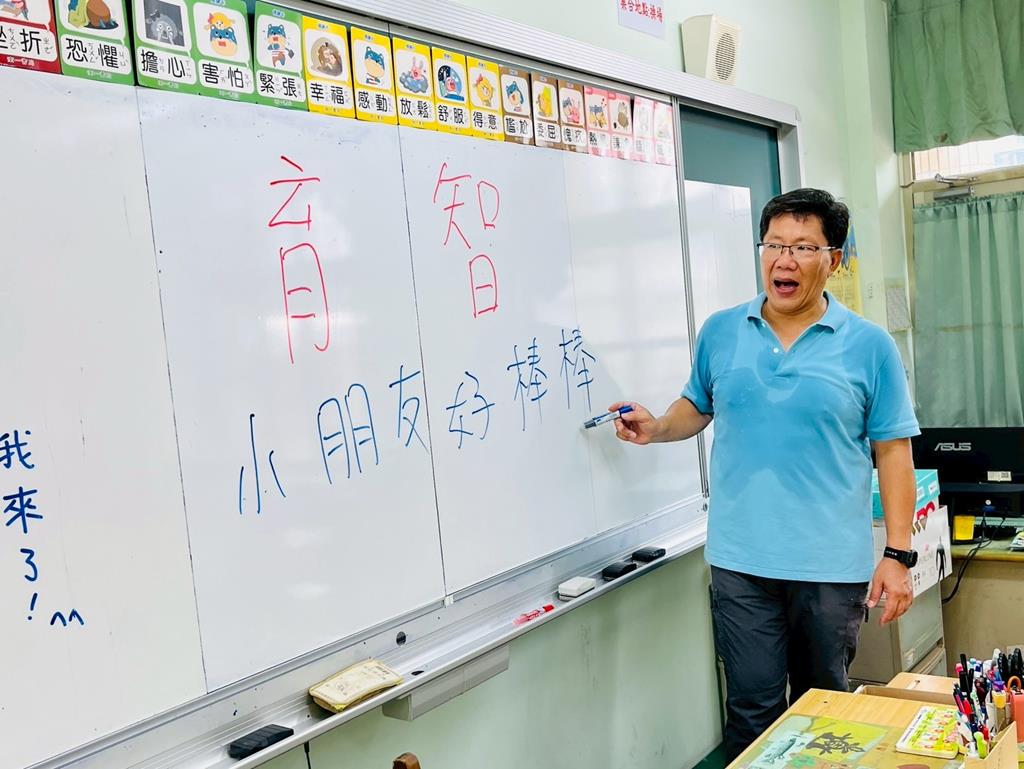 折 恐懼 擔心 害怕 緊張 幸福 感動 放鬆 舒服 得意 尷尬 委屈 愧疚
集合地點:
育 智
小朋友好棒棒
我來了! ^^
ASUS